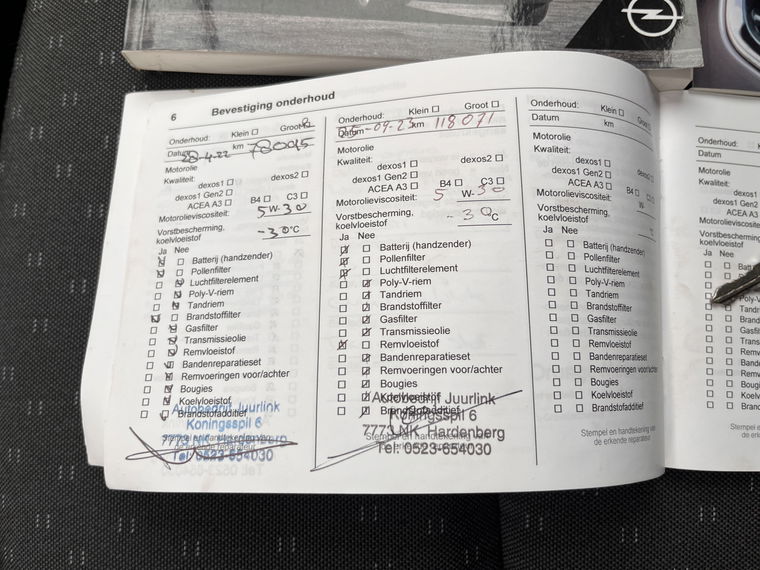 6 Bevestiging onderhoud
Onderhoud: Klein Groot
Datum 28-4-22 km 78095
Motorolie
Kwaliteit:
dexos1 dexos2
dexos1 Gen2
ACEA A3 B4 C3
Motorolieviscositeit: 5 W-30
Vorstbescherming, koelvloeistof -30°C
Ja Nee
Batterij (handzender)
Pollenfilter
Luchtfilterelement
Poly-V-riem
Tandriem
Brandstoffilter
Gasfilter
Transmissieolie
Remvloeistof
Bandenreparatieset
Remvoeringen voor/achter
Bougies
Koelvloeistof
Brandstofadditief
Autobedrijf Juurlink
Koningsspil 6
7773 NK Hardenberg
Tel. 0523-654030
Onderhoud: Klein Groot
Datum -09-23 km 118071
Motorolie
Kwaliteit:
dexos1 dexos2
dexos1 Gen2
ACEA A3 B4 C3
Motorolieviscositeit: 5 W-30
Vorstbescherming, koelvloeistof -30°C
Ja Nee
Batterij (handzender)
Pollenfilter
Luchtfilterelement
Poly-V-riem
Tandriem
Brandstoffilter
Gasfilter
Transmissieolie
Remvloeistof
Bandenreparatieset
Remvoeringen voor/achter
Bougies
Koelvloeistof
Brandstofadditief
Autobedrijf Juurlink
Koningsspil 6
7773 NK Hardenberg
Tel. 0523-654030
Onderhoud: Klein Groot
Datum km
Motorolie
Kwaliteit:
dexos1 dexos2
dexos1 Gen2
ACEA A3 B4 C3
Motorolieviscositeit: W
Vorstbescherming, koelvloeistof °C
Ja Nee
Batterij (handzender)
Pollenfilter
Luchtfilterelement
Poly-V-riem
Tandriem
Brandstoffilter
Gasfilter
Transmissieolie
Remvloeistof
Bandenreparatieset
Remvoeringen voor/achter
Bougies
Koelvloeistof
Brandstofadditief
Stempel en handtekening van
de erkende reparateur
Onderhoud:
Datum
Motorolie
Kwaliteit:
dexos1
dexos1 Gen2
ACEA A3
Motorolieviscositeit
Vorstbescherming
koelvloeistof
Ja Nee